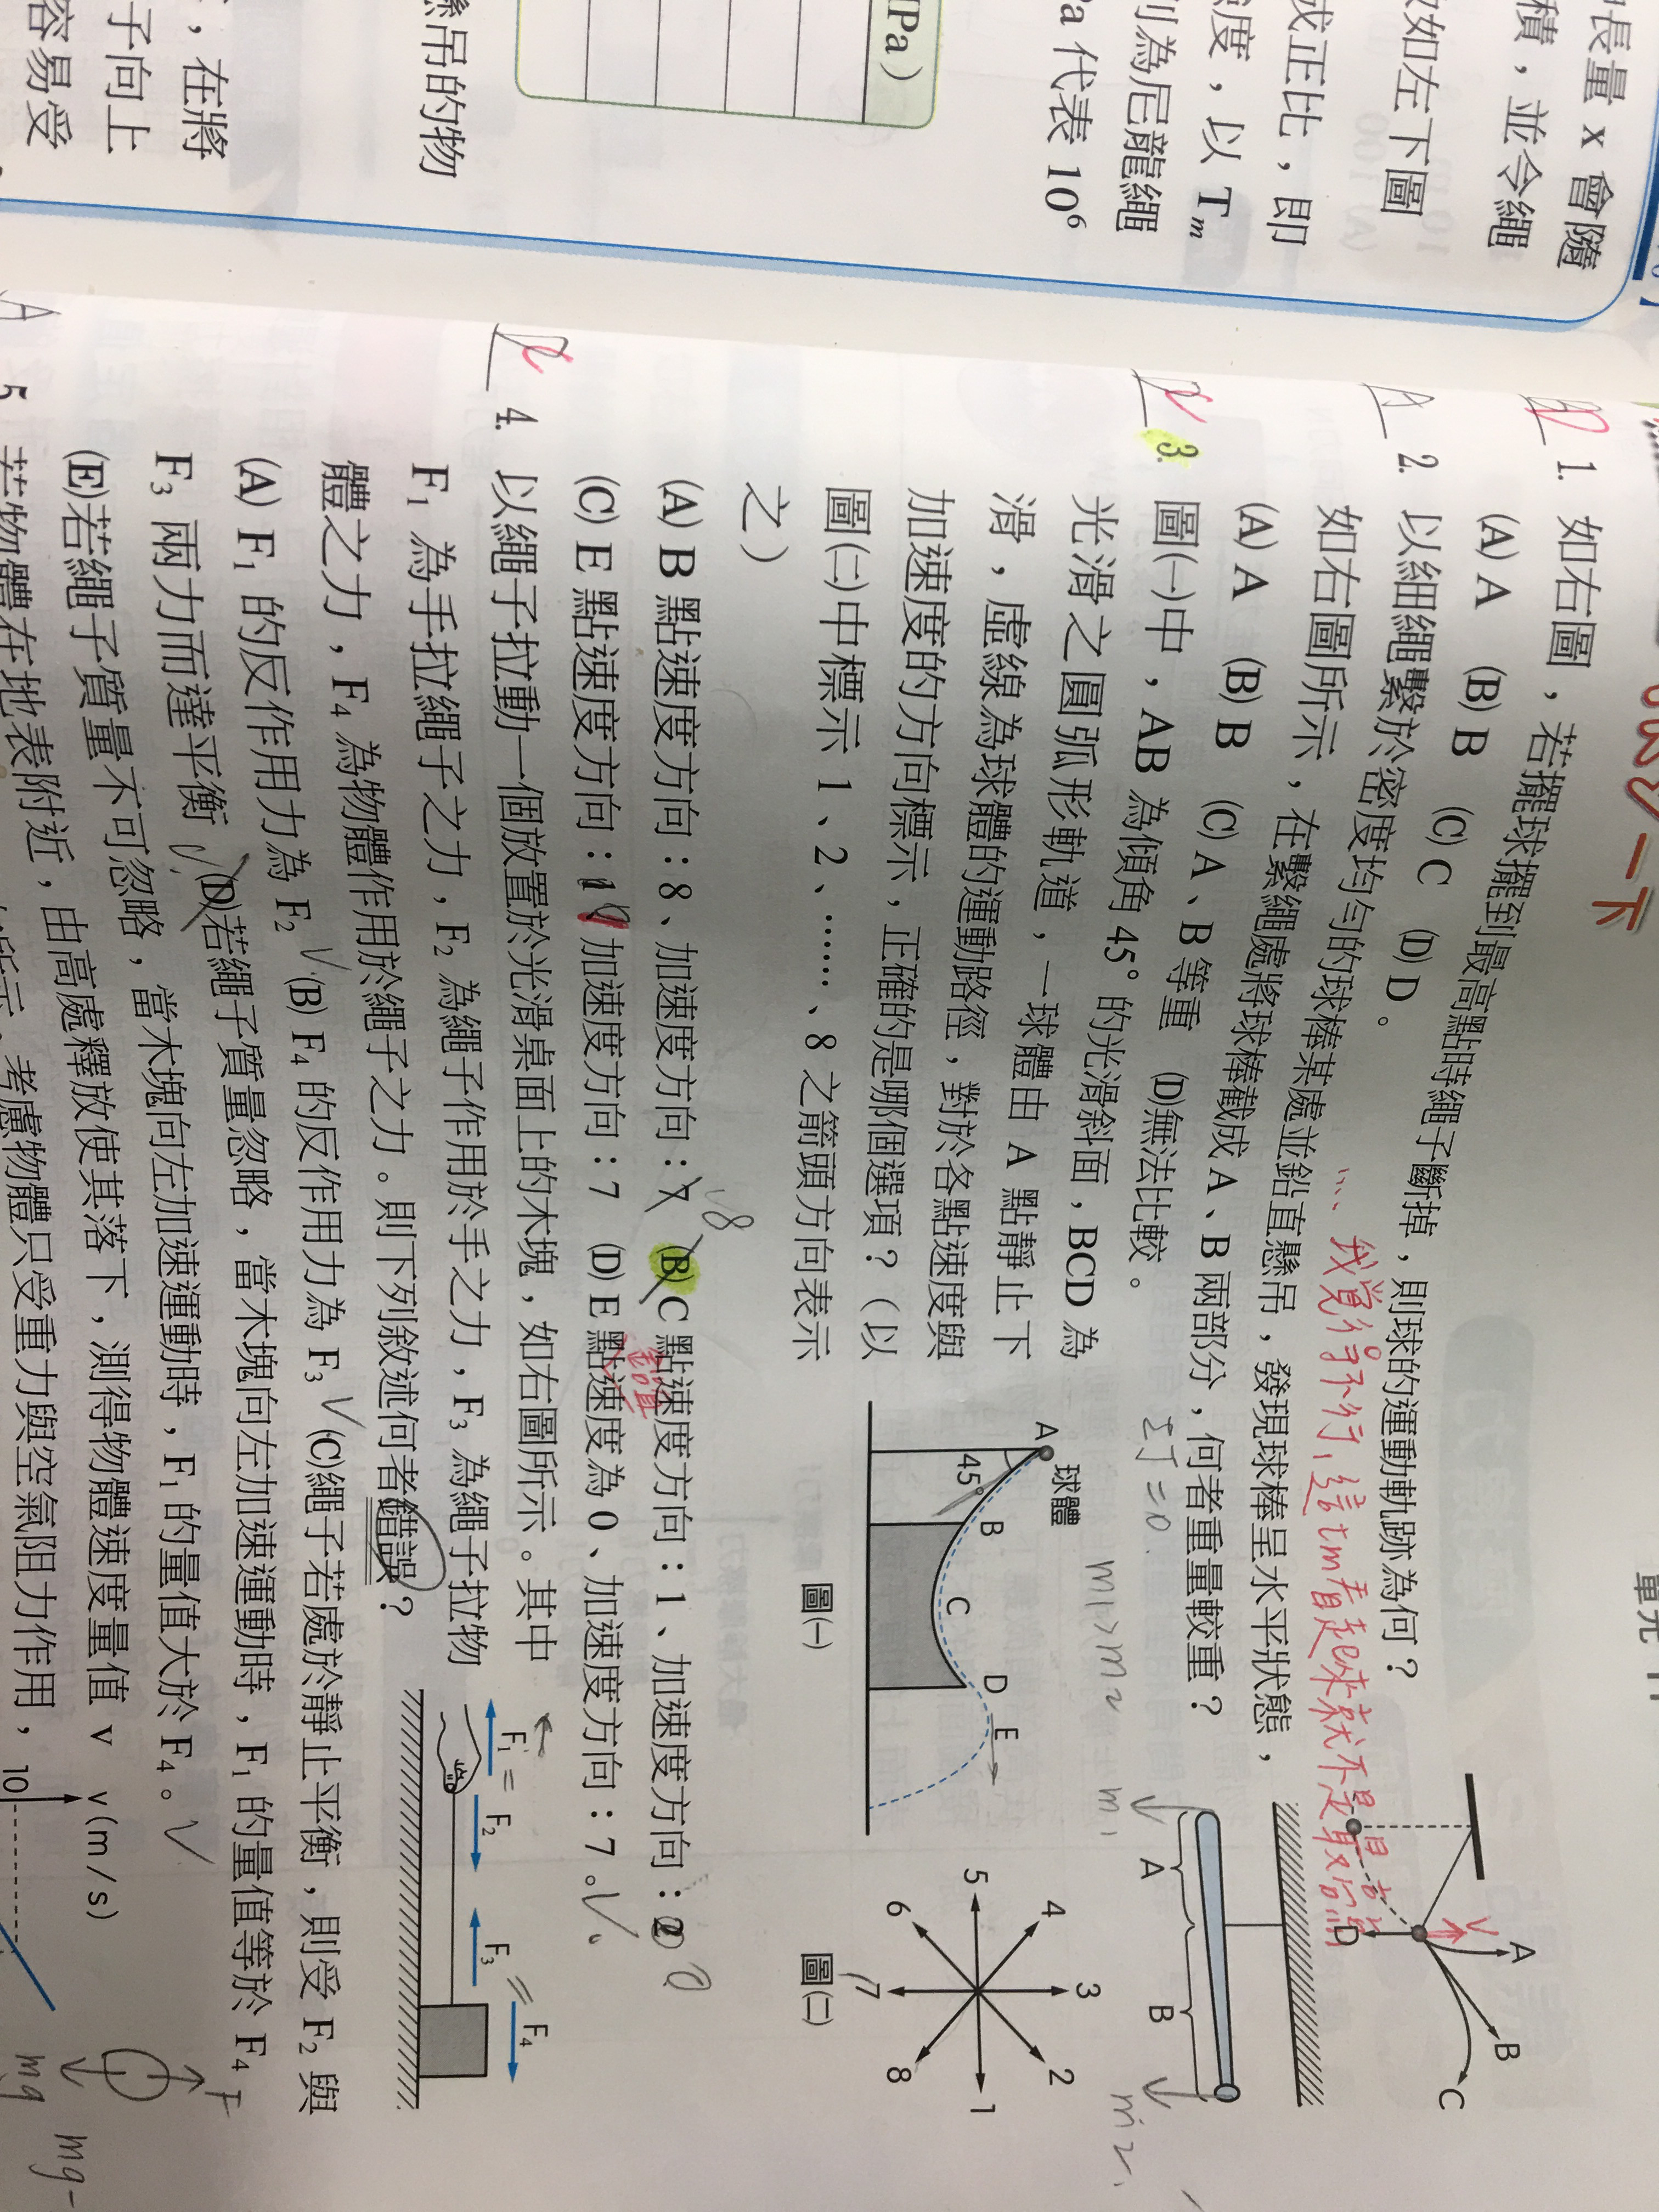 長量 x 會隨
積，並令繩
如左下圖
成正比，即
度，以 Tm
列為尼龍繩
Pa 代表 10⁶
Pa）
懸吊的物
，在將
子向上
容易受
一下
單元
1. 如右圖，若擺球擺到最高點時繩子斷掉，則球的運動軌跡為何？
(A) A (B) B (C) C (D) D。
A 2. 以細繩繫於密度均勻的球棒某處並鉛直懸吊，發現球棒呈水平狀態，
如右圖所示，在繫繩處將球棒截成 A、B 兩部分，何者重量較重？
(A) A (B) B (C) A、B 等重 (D)無法比較。
我覺得不行,這tm看起來就不是最高點
ΣJ=0.
m1>m2
m1
m2
A
B
C
D
V
A
B
3. 圖㈠中，AB 為傾角 45° 的光滑斜面，BCD 為
光滑之圓弧形軌道，一球體由 A 點靜止下
滑，虛線為球體的運動路徑，對於各點速度與
加速度的方向標示，正確的是哪個選項？（以
圖㈡中標示 1、2、……、8 之箭頭方向表示
之）
A 球體
45°
B
C
D
E
圖㈠
1
2
3
4
5
6
7
8
圖㈡
(A) B 點速度方向：8、加速度方向：7 (B) C 點速度方向：1、加速度方向：0
8
(C) E 點速度方向：1、加速度方向：7 (D) E 點速度為 0、加速度方向：7。
4. 以繩子拉動一個放置於光滑桌面上的木塊，如右圖所示。其中
F₁ 為手拉繩子之力，F₂ 為繩子作用於手之力，F₃ 為繩子拉物
體之力，F₄ 為物體作用於繩子之力。則下列敘述何者錯誤？
(A) F₁ 的反作用力為 F₂ (B) F₄ 的反作用力為 F₃ (C)繩子若處於靜止平衡，則受 F₂ 與
F₃ 兩力而達平衡 (D)若繩子質量忽略，當木塊向左加速運動時，F₁ 的量值等於 F₄
(E)若繩子質量不可忽略，當木塊向左加速運動時，F₁ 的量值大於 F₄。
F₁ =
F₂
F₃ =
F₄
A 5. 若物體在地表附近，由高處釋放使其落下，測得物體速度量值 v
所示，考慮物體只受重力與空氣阻力作用，
v (m/s)
10
F
mg
mg-